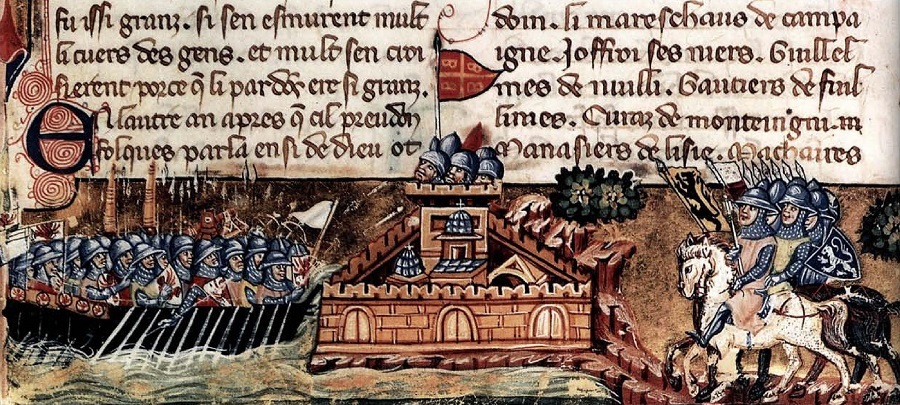 fu issi granz. si sen esmurent mult
li cuers des gens. et mult sen croi
sierent porce q̃ li pardōs ere si granz.
En lautre an apres q̃ cil preudom
folques parla ensi de dieu ot
doin. li mareschaus de campa
igne. Joffroi ses niers. Guillel
mes de nuilli. Gautiers de fuil
limes. Euraz de monteingni.
Manasiers de lisle. Machaires